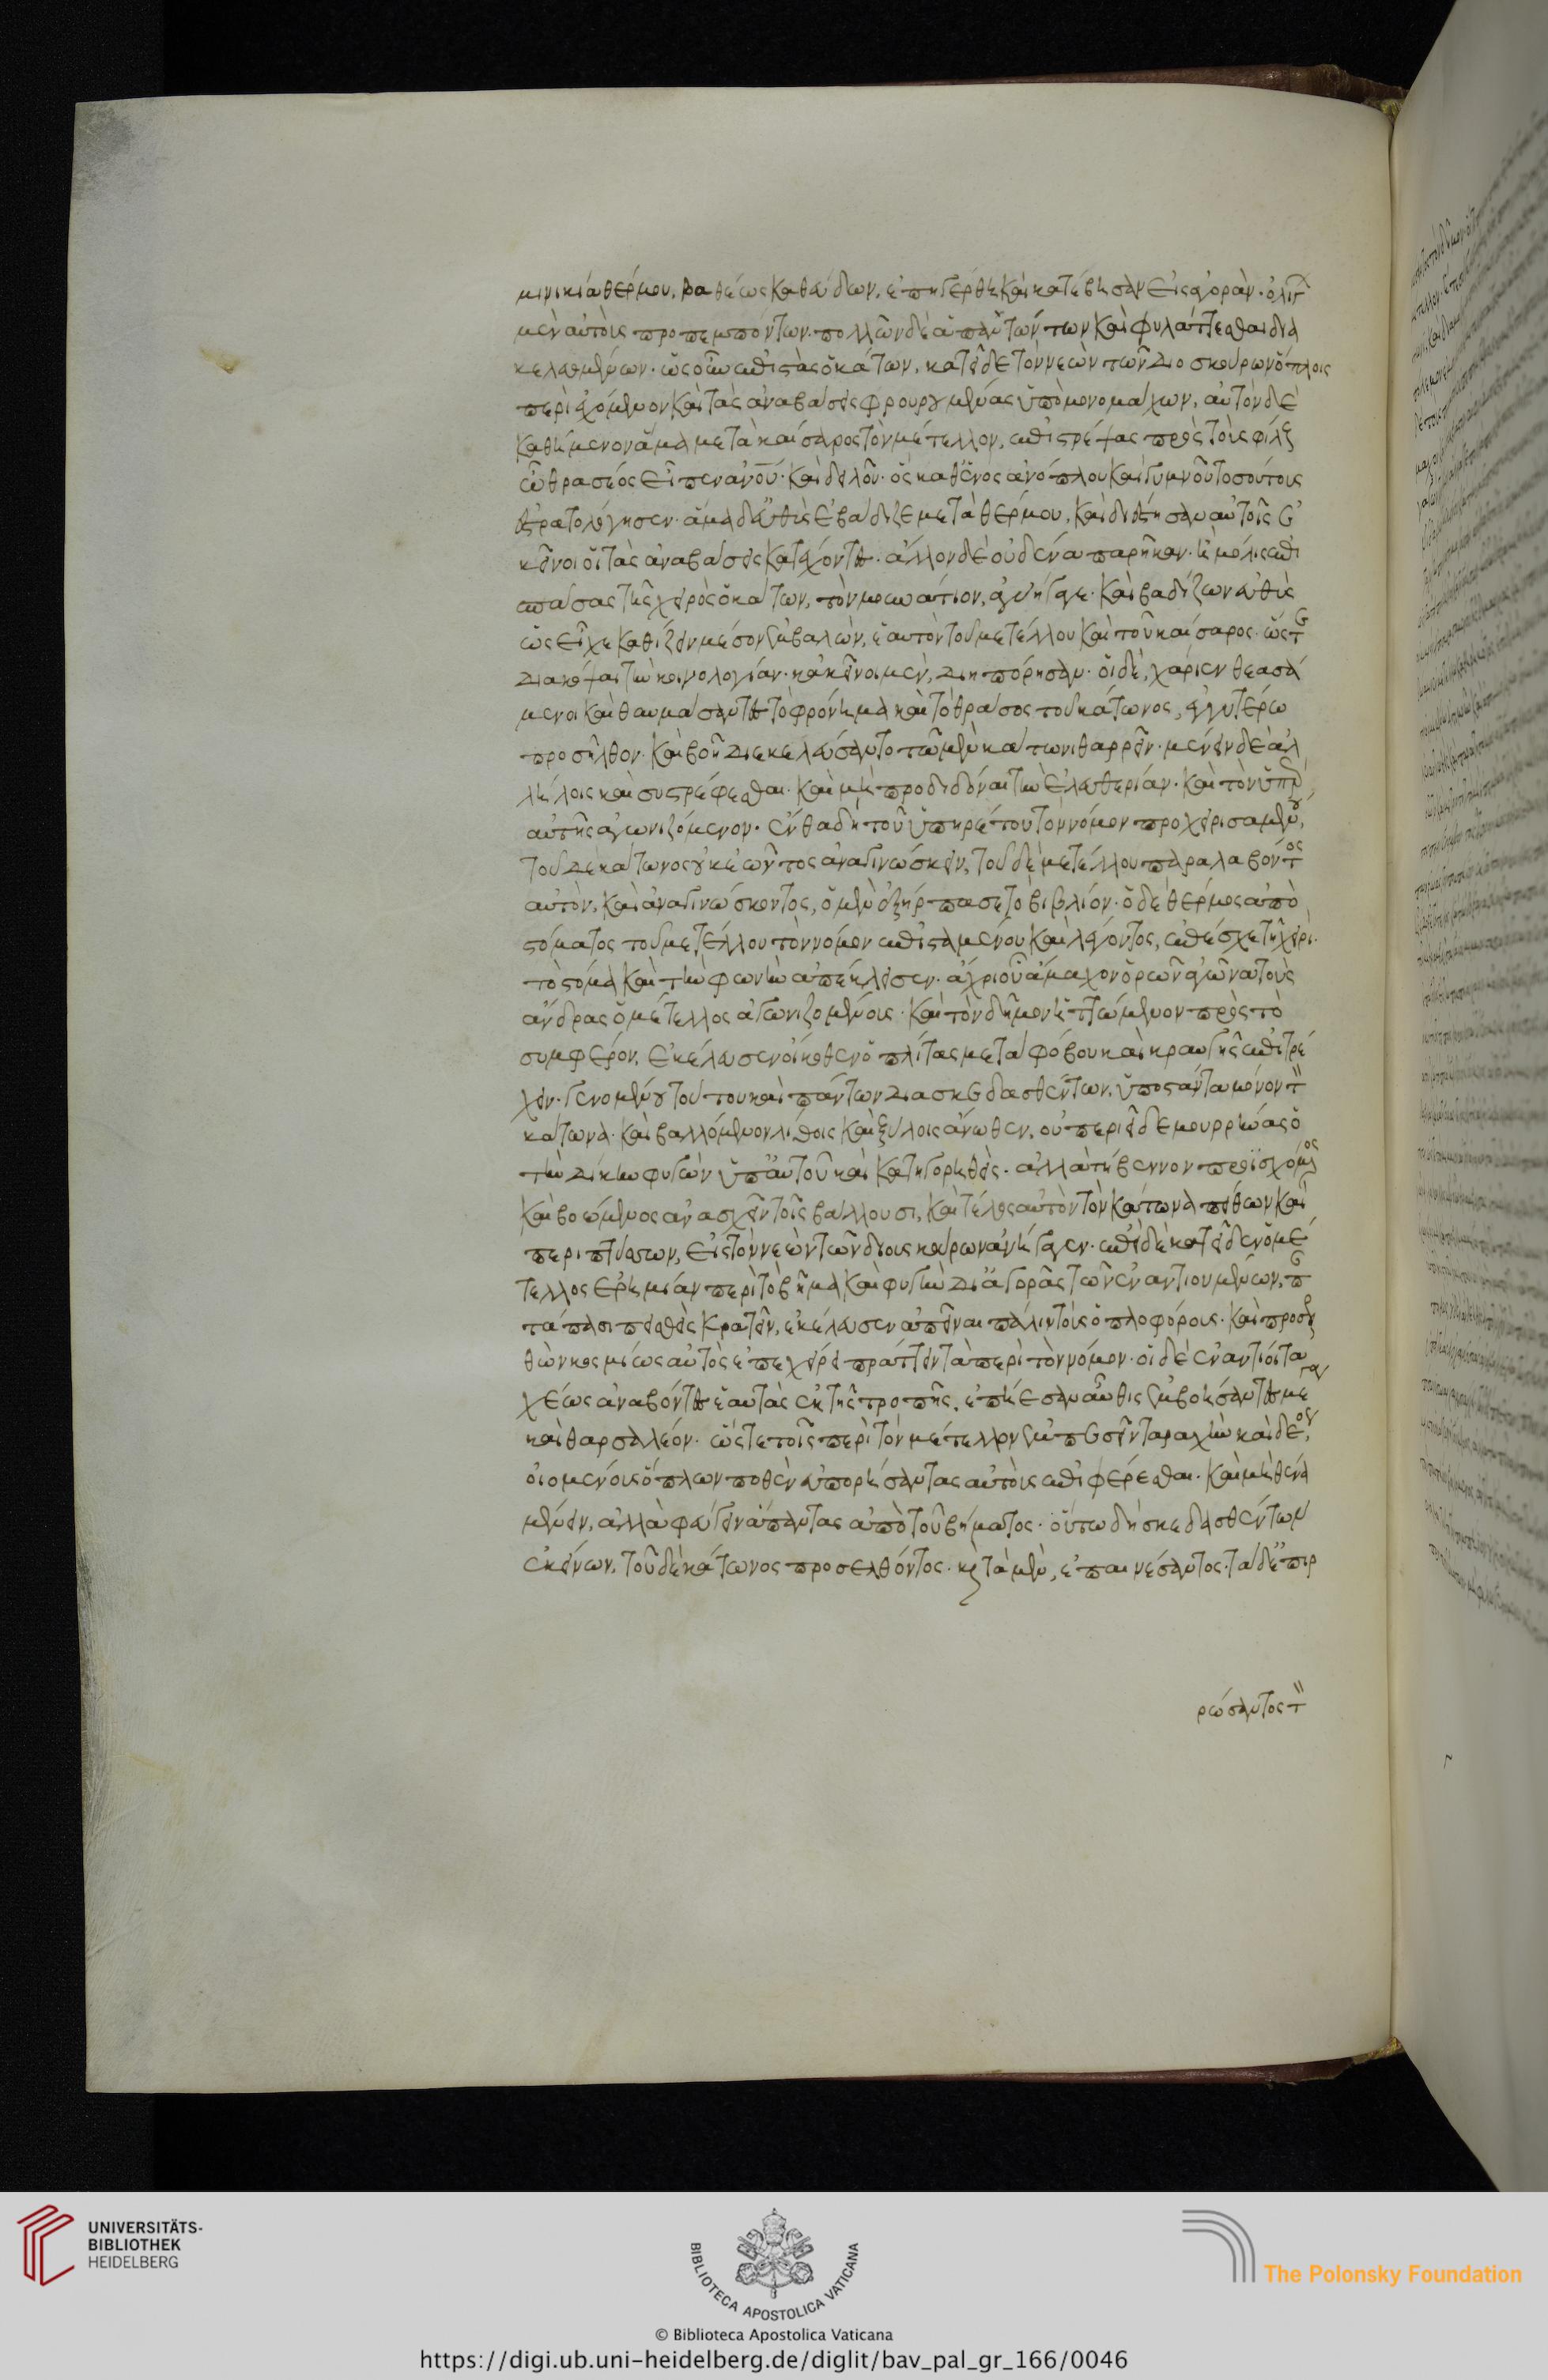 μινικίου θέρμου. βαθέως καθεύδων, ἐπηγέρθη καὶ κατέβησαν εἰς ἀγορὰν. ὀλίγ
μὲν αὐτοὺς προπεμπόντων. πολλῶν δὲ ἀπαντώντων καὶ φυλάττεσθαι δια
κελευομένων. ὡς οὖν ἐπιστὰς ὁ κάτων, κατεῖδε τὸν νεὼν τῶν διοσκούρων ὅπλοις
περιεχόμενον καὶ τὰς ἀναβάσεις φρουρουμένας ὑπὸ μονομάχων, αὐτὸν δὲ
καθήμενον ἄμα μετὰ καίσαρος τὸν μέτελλον, ἐπιστρέψας πρὸς τοὺς φίλους
ὢ θρασέος εἶπεν ἀνοῦ. καὶ δειλοῦ. ὃς καθ' ἑνὸς ἀνόπλου καὶ γυμνοῦ τοσούτους
ἐστρατολόγησεν. ἅμα δ' εὐθὺς ἐβάδιζε μετὰ θέρμου, καὶ διέστησαν αὐτοῖς ἐ
κεῖνοι οἱ τὰς ἀναβάσεις κατέχοντες. ἄλλον δὲ οὐδένα παρῆκαν. ἢ μόλις ἐπι
σπάσας τῆς χειρὸς ὁ κάτων, τὸν μουνάτιον, ἀνήγαγε. καὶ βαδίζων εὐθὺς
ὡς εἶχε καθίζει μέσον ἐμβαλὼν, ἑαυτὸν τοῦ μετέλλου καὶ τοῦ καίσαρος. ὥστε
διακόψαι τὴν κοινολογίαν. κἀκεῖνοι μὲν, διηπόρησαν. οἱ δὲ, χάριεν θεασά
μενοι καὶ θαυμάσαντες τὸ φρόνημα καὶ τὸ θράσος τοῦ κάτωνος, ἐγγυτέρω
προσῆλθον. καὶ βοῇ διεκελεύσαντο τῷ μὲν κάτωνι θαρρεῖν. μένειν δὲ ἀλ
λήλοις καὶ συστρέφεσθαι. καὶ μὴ προδιδόναι τὴν ἐλευθερίαν. καὶ τὸν ὑπὲρ
αὐτῆς ἀγωνιζόμενον. ἔνθα δὴ τοῦ ὑπηρέτου τὸν νόμον προχειρισαμένου,
τοῦ δὲ κάτωνος οὐκ ἐῶντος ἀναγινώσκειν, τοῦ δὲ μετέλλου παραλαβόντος
αὐτὸν, καὶ ἀναγινώσκοντος, ὁ μὲν ἐξήρπασε τὸ βιβλίον. ὁ δὲ θέρμος ἀπὸ
στόματος τοῦ μετέλλου τὸν νόμον ἐπισταμένου καὶ λέγοντος, ἐπέσχε τῇ χειρὶ
τὸ στόμα καὶ τὴν φωνὴν ἀπέκλεισεν. ἄχρι οὗ ἄμαχον ὁρῶν ἀγῶνα τοὺς
ἄνδρας ὁ μέτελλος ἀγωνιζομένους. καὶ τὸν δῆμον ἡττώμενον πρὸς τὸ
συμφέρον, ἐκέλευσεν οἴκοθεν ὁπλίτας μετὰ φόβου καὶ κραυγῆς ἐπιτρέ
χειν. γενομένου τούτου καὶ πάντων διασκεδασθέντων, ὑποστάντα μόνον τὸν
κάτωνα. καὶ βαλλόμενον λίθοις καὶ ξύλοις ἄνωθεν, οὐ περιεῖδε μουρρήνας ὁ
τὴν δίκην φυγὼν ὑπ' αὐτοῦ καὶ κατηγορηθείς. ἀλλὰ τήβεννον προϊσχόμενος
καὶ βοώμενος ἀνασχεῖν τοῖς βάλλουσι, καὶ τέλος αὐτὸν τὸν κάτωνα πείθων καὶ
περιπτύσσων, εἰς τὸν νεὼν τῶν διοσκούρων ἀνήγαγεν. ἐπεὶ δὲ κατεῖδεν ὁ μέ
τελλος ἐρημίαν περὶ τὸ βῆμα καὶ φυγὴν δι' ἀγορᾶς τῶν ἐναντιουμένων, πε
ντάπασι πεισθεὶς κρατεῖν, ἐκέλευσεν ἀπιέναι πάλιν τοὺς ὁπλοφόρους. καὶ προσελ
θὼν κοσμίως αὐτὸς ἐπεχείρει πράττειν τὰ περὶ τὸν νόμον. οἱ δὲ ἐναντίοι τα
χέως ἀναβόντες ἑαυτὰς ἐκ τῆς τροπῆς. ἐπῄεσαν αὖθις ἐμβοήσαντες μέγα
καὶ θαρσαλέον. ὥστε τοῖς περὶ τὸν μέτελλον ἐμπεσεῖν ταραχὴν καὶ δέος,
οἰομένους ὅπλων ποθὲν εὐπορήσαντας αὐτοὺς ἐπιφέρεσθαι. καὶ μηθένα
μένειν, ἀλλὰ φεύγειν ἅπαντας ἀπὸ τοῦ βήματος. οὕτω δὴ σκεδασθέντων
ἐκείνων, τοῦ δὲ κάτωνος προσελθόντος. καὶ τὰ μὲν, ἐπαινέσαντος. τὰ δ' ἐπιρ
ρώσαντος τὸν
UNIVERSITÄTS-
BIBLIOTHEK
HEIDELBERG
BIBLIOTECA APOSTOLICA VATICANA
The Polonsky Foundation
© Biblioteca Apostolica Vaticana
https://digi.ub.uni-heidelberg.de/diglit/bav_pal_gr_166/0046